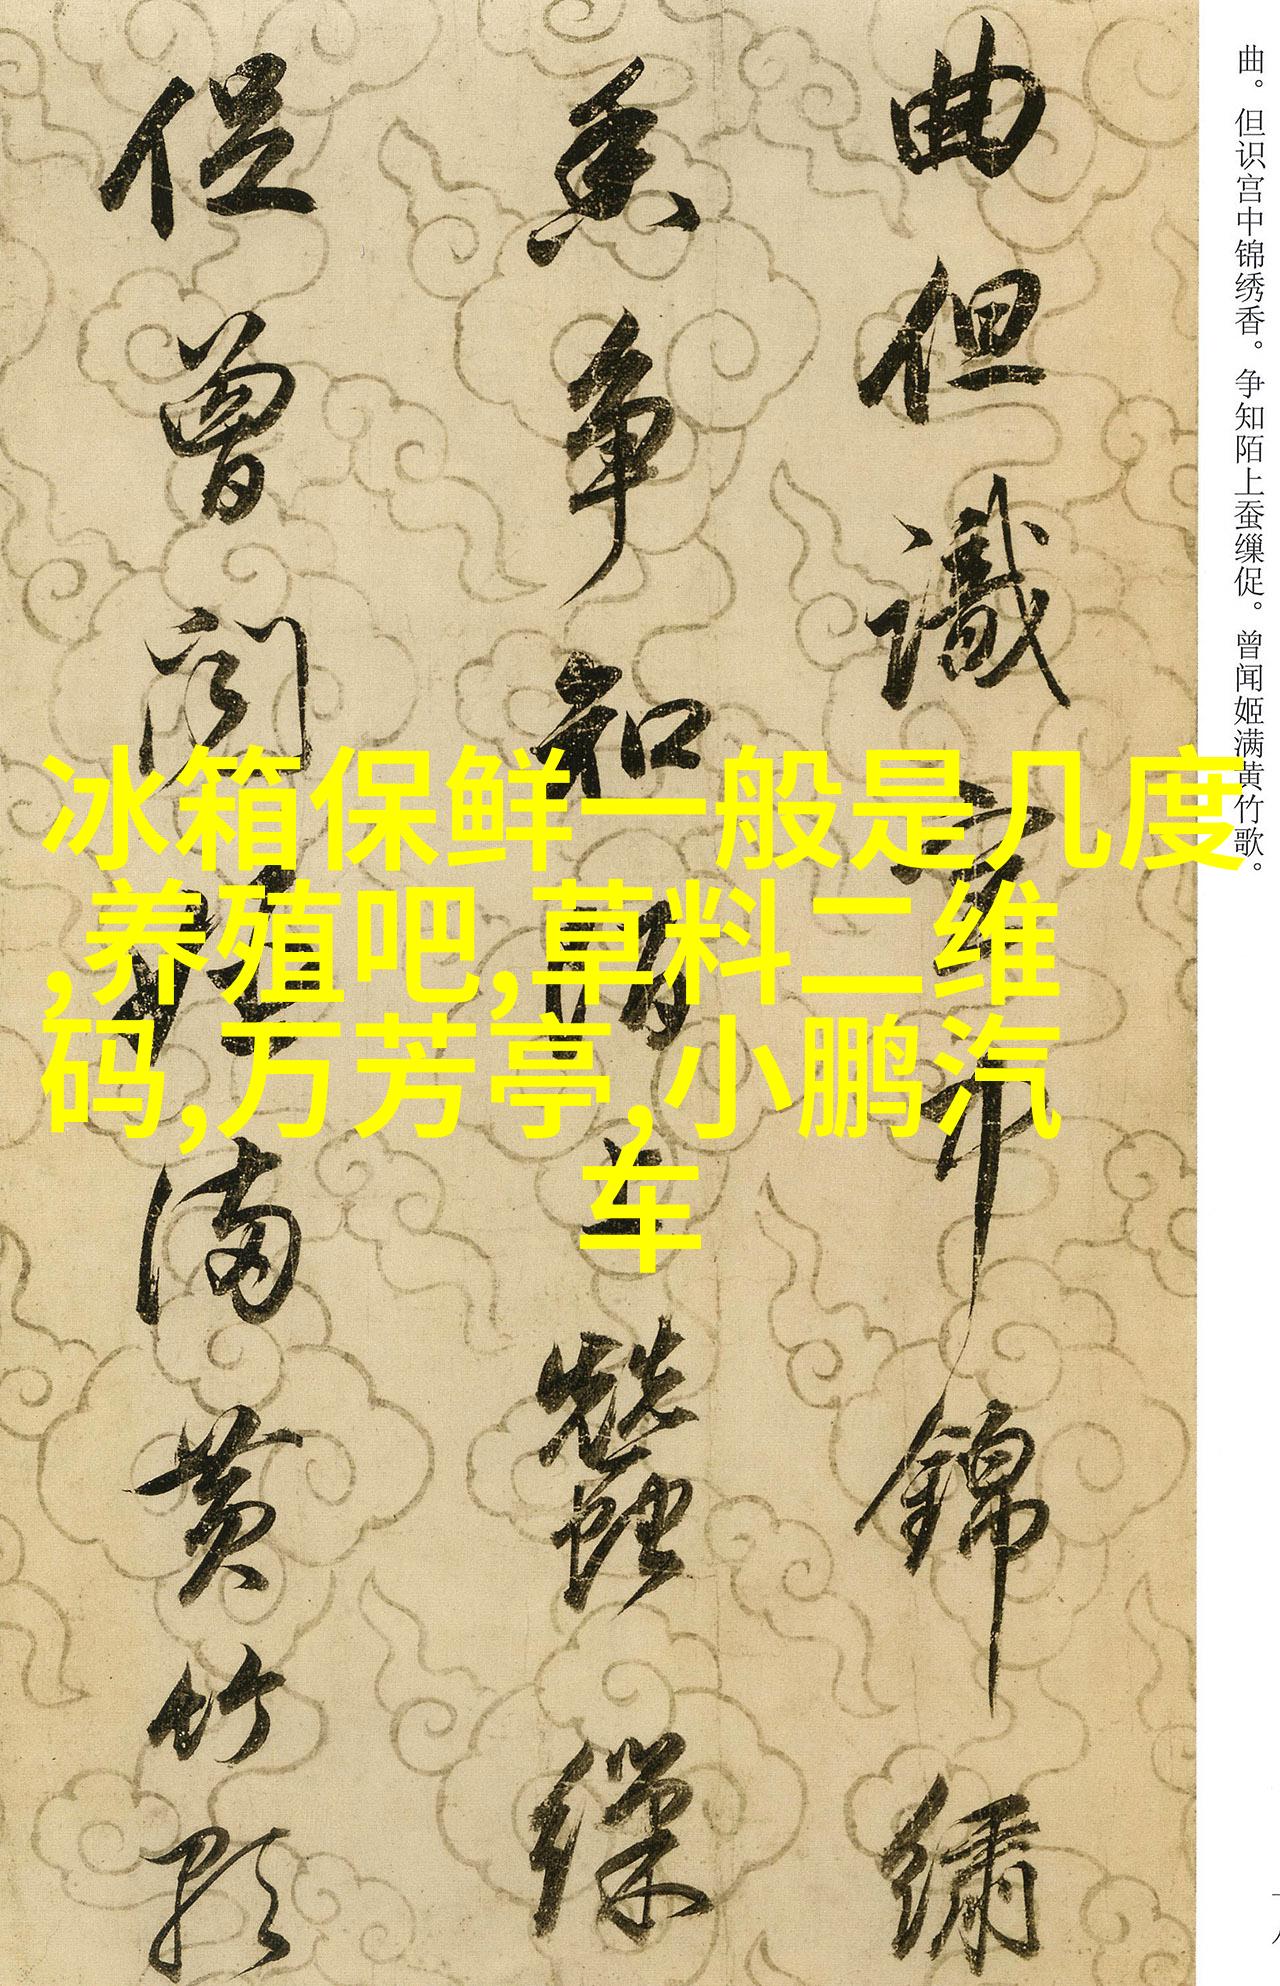 曲但識宫中錦繡
香争知陌上蠶繅
促曾闻姬满黄竹歌
曲。但识宫中锦绣香。争知陌上蚕缫促。曾闻姬满黄竹歌。
冰箱保鲜一般是几度
,养殖吧,草料二维
码,万芳亭,小鹏汽
车